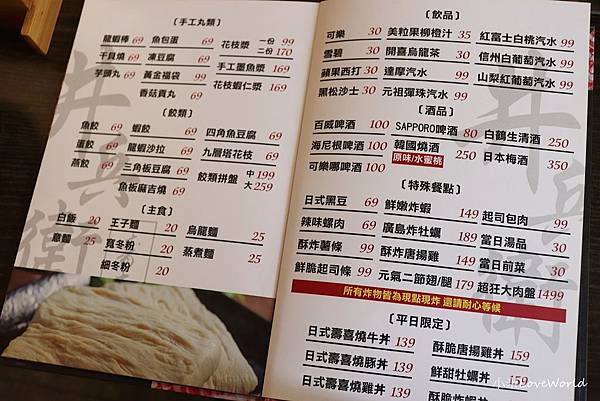 〔手工丸類〕
龍蝦棒 69 魚包蛋 69 花枝漿 一份 99 二份 170
干貝燒 69 凍豆腐 69 手工墨魚漿 99
芋頭丸 69 黃金福袋 99 花枝蝦仁漿 99
香菇貢丸 69
〔餃類〕
魚餃 69 蝦餃 69 四角魚豆腐 69
蛋餃 69 龍蝦沙拉 69 九層塔花枝 69
燕餃 69 三角板豆腐 69 餃類拼盤 中 199 大 259
魚板麻吉燒 69
〔主食〕
白飯 20 王子麵 20 烏龍麵 25
意麵 25 寬冬粉 20 蒸煮麵 25
細冬粉 20
井兵衛
〔飲品〕
可樂 30 美粒果柳橙汁 35 紅富士白桃汽水 99
雪碧 30 開喜烏龍茶 30 信州白葡萄汽水 99
蘋果西打 30 達摩汽水 99 山梨紅葡萄汽水 99
黑松沙士 30 元祖彈珠汽水 99
〔酒品〕
百威啤酒 100 SAPPORO啤酒 80 白鶴生清酒 250
海尼根啤酒 100 韓國燒酒 250 日本梅酒 350
可樂哪啤酒 100 原味/水蜜桃
〔特殊餐點〕
日式黑豆 69 鮮嫩炸蝦 149 起司包肉 99
辣味螺肉 69 廣島炸牡蠣 189 當日湯品 30
酥炸薯條 99 酥炸唐揚雞 149 當日前菜 30
鮮脆起司條 99 元氣二節翅/腿 179 超狂大肉盤 1499
所有炸物皆為現點現炸 還請耐心等候
〔平日限定〕
日式壽喜燒牛丼 139 酥脆唐揚雞丼 159
日式壽喜燒豚丼 139 鮮甜牡蠣丼 159
日式壽喜燒雞丼 139 酥脆炸蝦丼
井兵衛